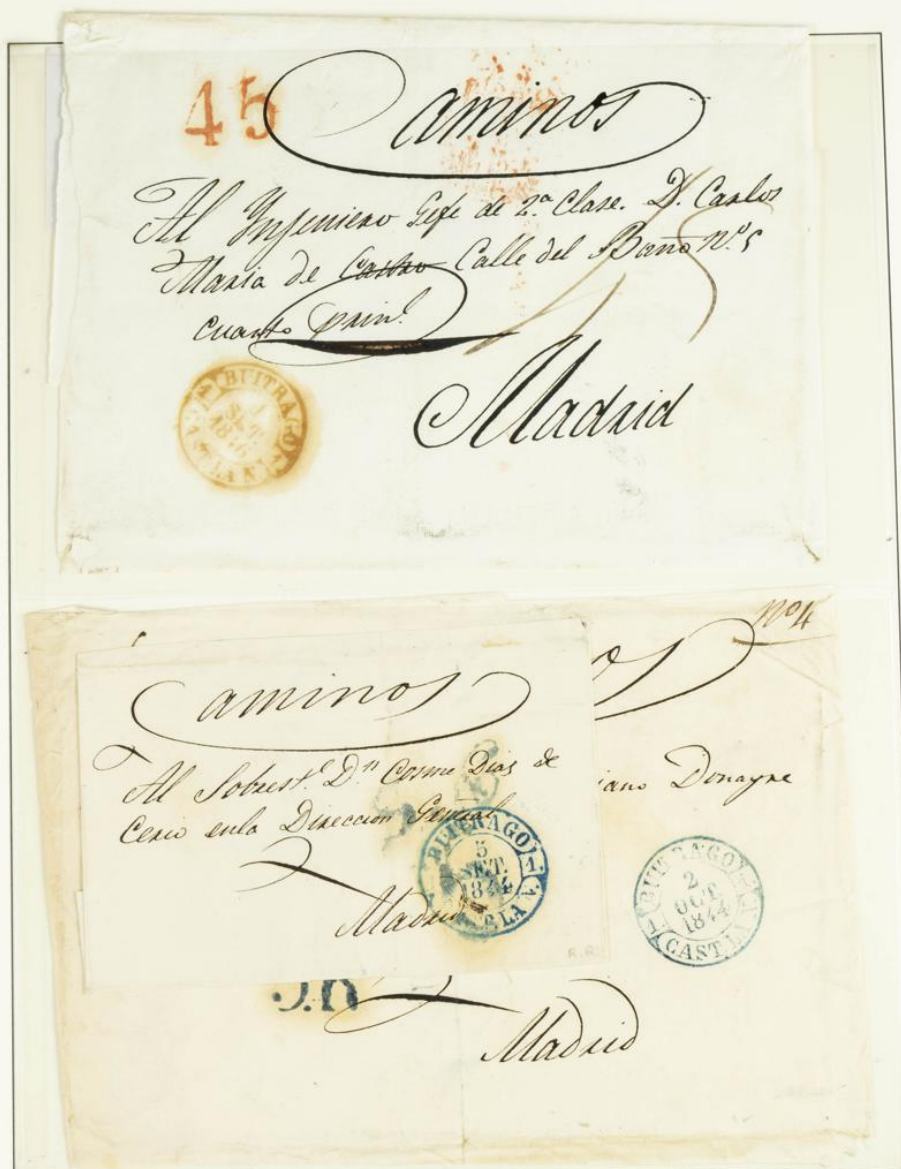 45
Caminos
Al Ynjeniero Gefe de 2.ª Clase. D. Carlos
Maria de Castro Calle del Baño N.º 5
cuarto prin.l
45
BUITRAGO
1
SET.
1846
CAST.LA N.
Madrid
Nº 4
os
Caminos
Al Sobrest.e Dn Cosme Dias de
Cerio enla Direccion General
iano Donayre
BUITRAGO
5
SET.
1844
LA N.
1.
Madrid
BUITRAGO
2
OCT.
1844
CAST.LA N.
R.R.
Madrid